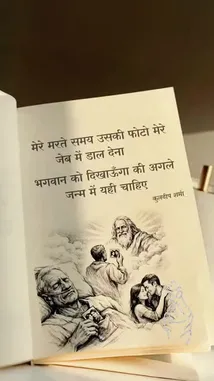 मेरे मरते समय उसकी फोटो मेरे
जेब में डाल देना
भगवान को दिखाऊँगा की अगले
जन्म में यही चाहिए
कुलदीप शर्मा